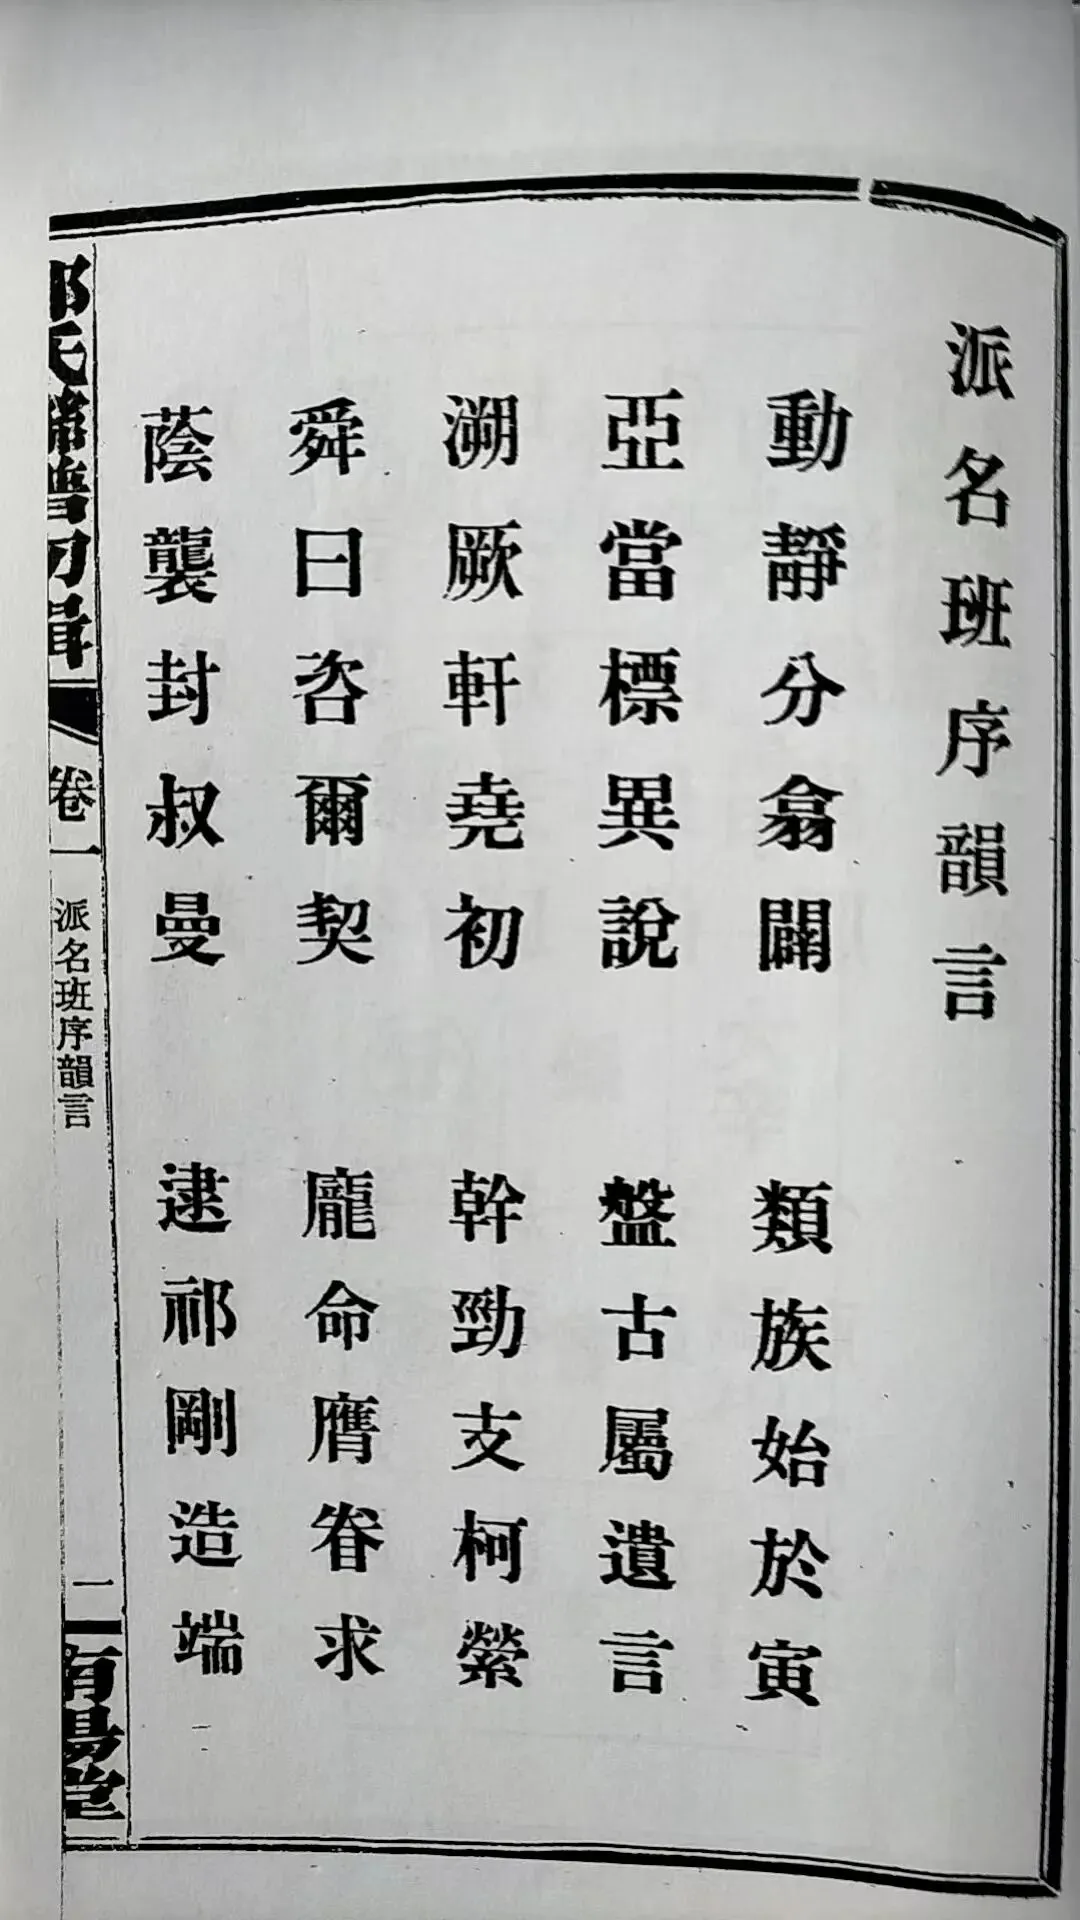 派名班序韻言
動靜分翕闢　類族始於寅
亞當標異說　盤古屬遺言
溯厥軒堯初　幹勁支柯縈
舜曰咨爾契　龐命膺眷求
蔭襲封叔曼　逮祁剛造端
氏譜初輯
卷一
派名班序韻言
二
有昜堂